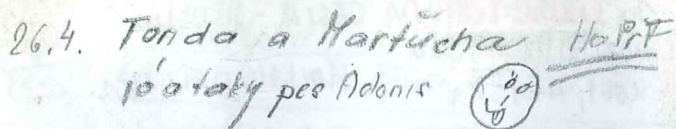 26.4. Tonda a Martúcha HoPřF
Jó a taky pes Adonis